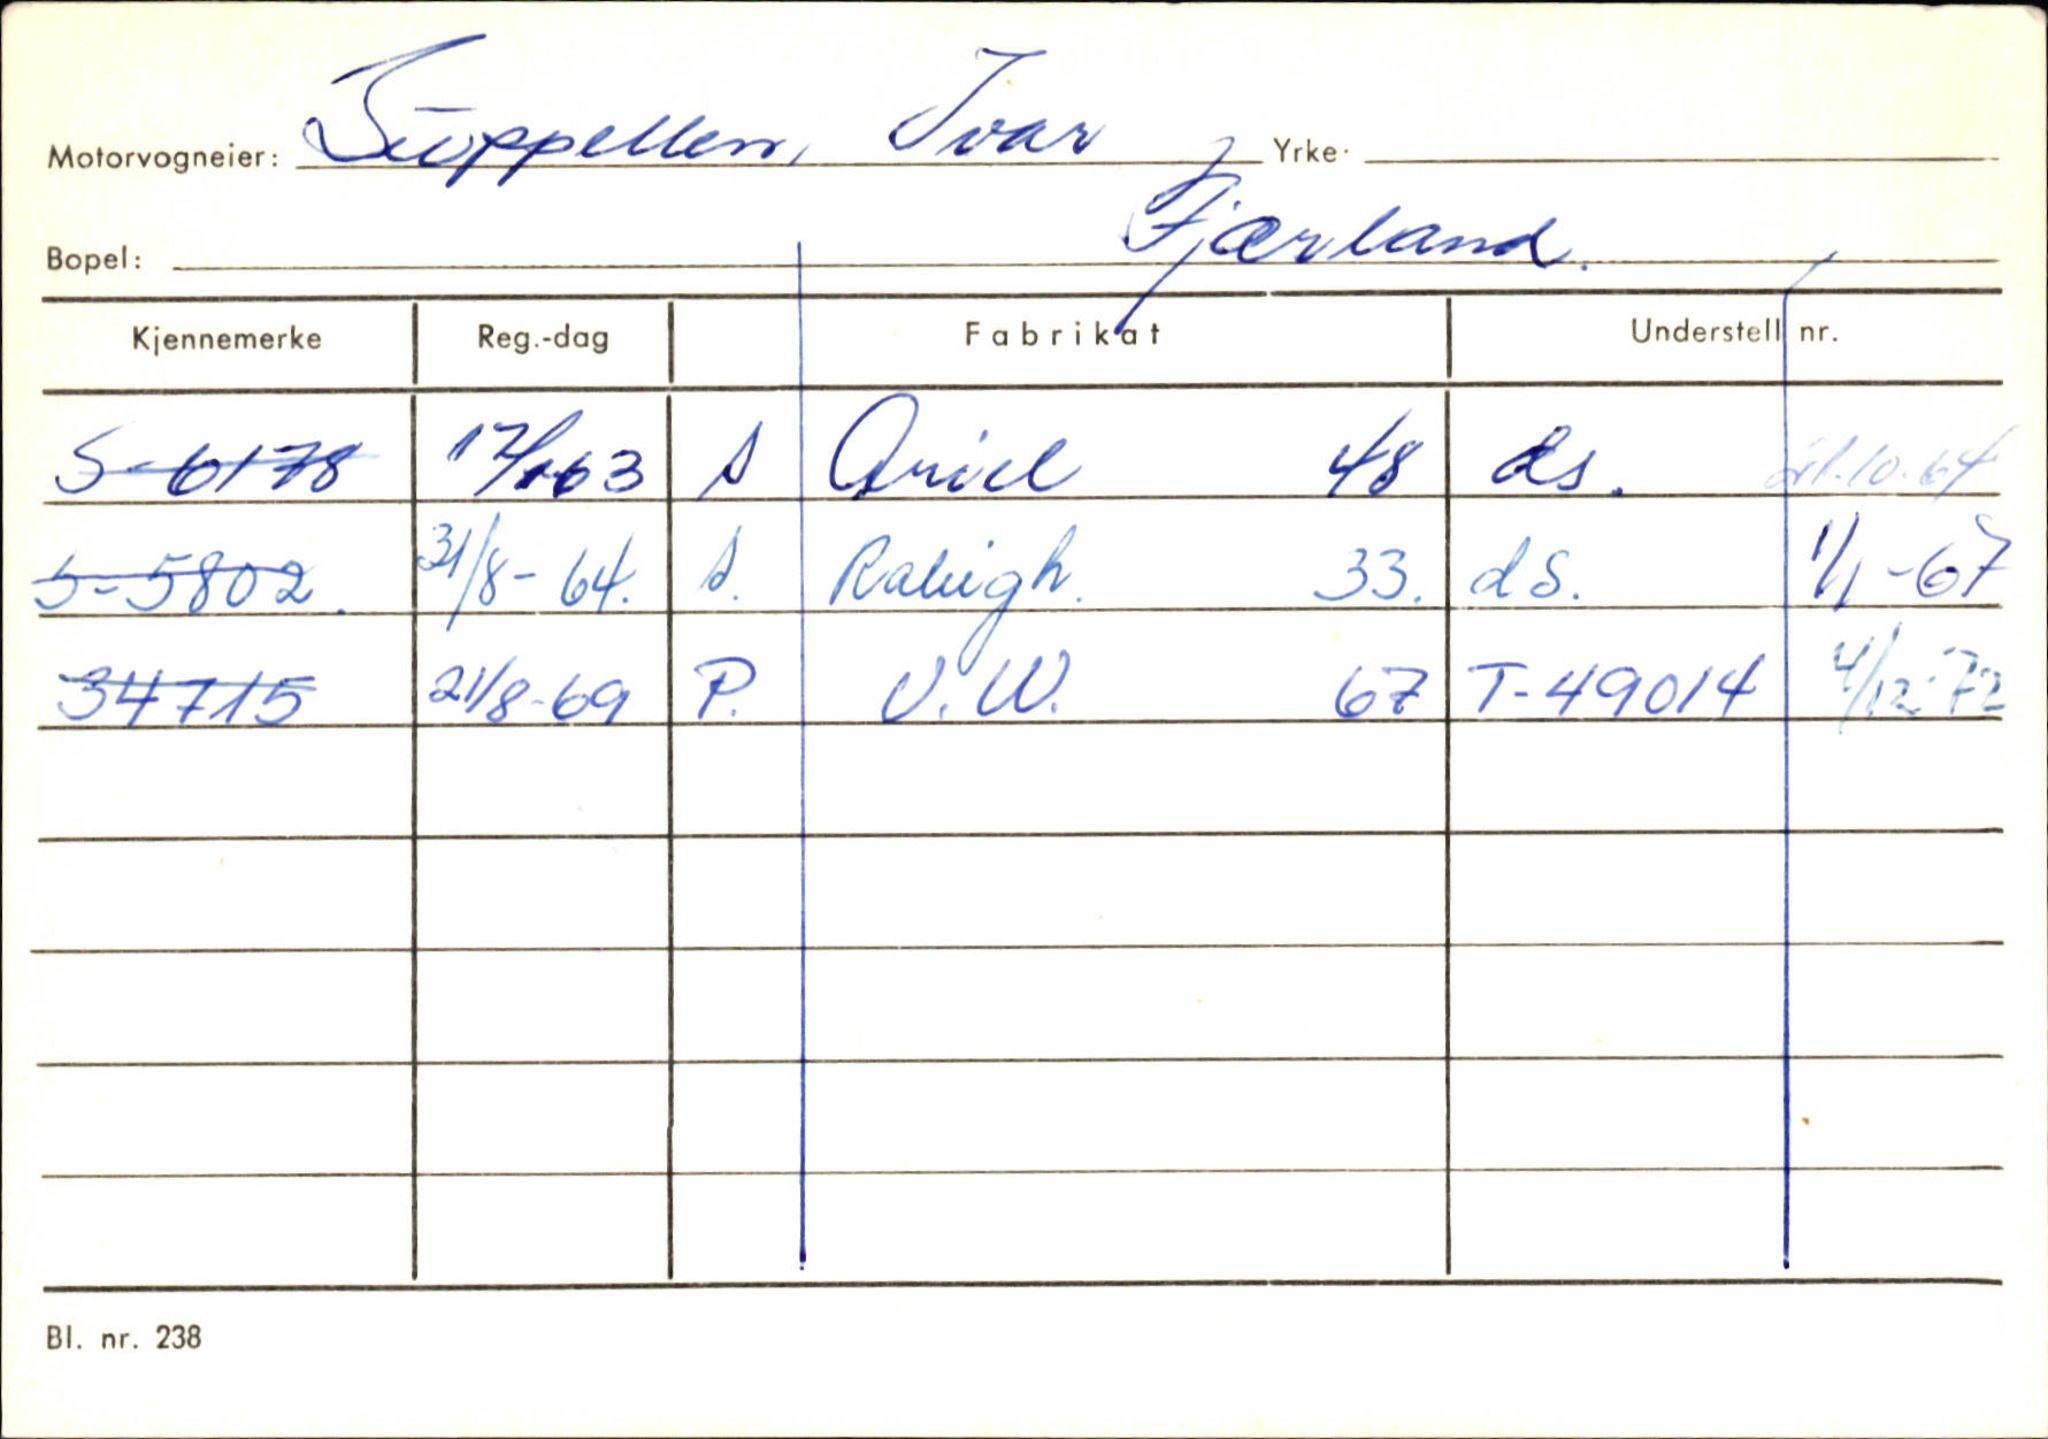 Motorvogneier: Suppellen, Ivar Yrke:
Bopel: Fjærland.
Kjennemerke Reg.-dag Fabrikat Understell nr.
S-6178 63 A Ariel 48 ds. 10-64
S-5802. 31/8-64. A. Raleigh. 33. ds. 1/1-67
34715 21/8-69 P. V.W. 67 T-49014 4/12-72
Bl. nr. 238